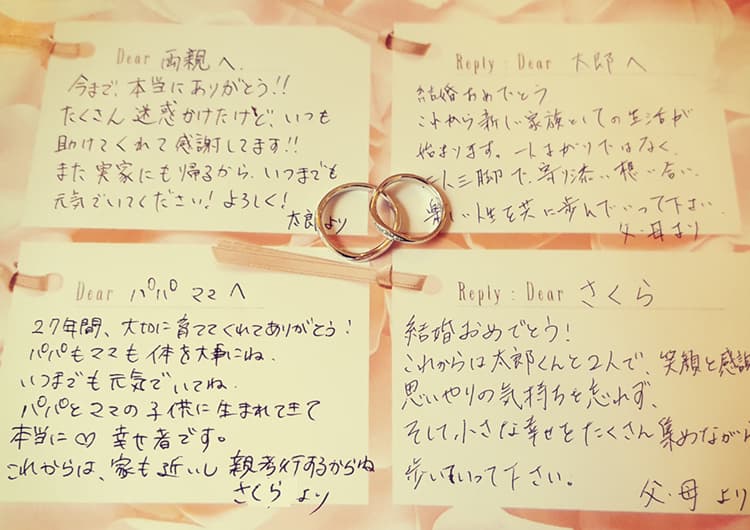 Dear 両親へ.
今まで、本当にありがとう!!
たくさん 迷惑かけたけど、いつも
助けてくれて 感謝してます!!
また 実家にも帰るから、いつまでも
元気でいてください! よろしく!
太郎 より
Reply : Dear 太郎へ
結婚おめでとう
これから新しい家族としての生活が
始まります。一人よがりではなく、
二人三脚で、寄り添い想い合い、
楽しい人生を共に歩んでいって下さい.
父・母より
Dear パパ ママ へ
27年間、大切に育ててくれてありがとう!
パパもママも体を大事にね.
いつまでも元気でいてね.
パパとママの子供に生まれてきて
本当に♡ 幸せ者です。
これからは、家も近いし 親孝行するからね
さくら より
Reply : Dear さくら
結婚おめでとう!
これからは太郎くんと2人で、笑顔と感謝
思いやりの気持ちを忘れず、
そして、小さな幸せをたくさん集めながら
歩いていって下さい。
父・母 より